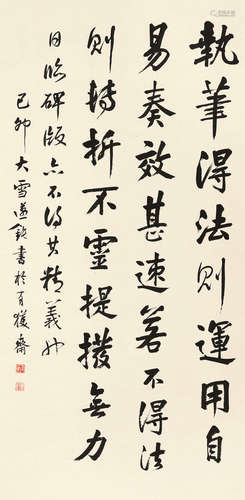 執筆得法則運用自
易奏效甚速若不得法
則轉折不靈提撥無力
日臨碑版亦不得其精義也
己卯大雪遂欽書於百猨齋